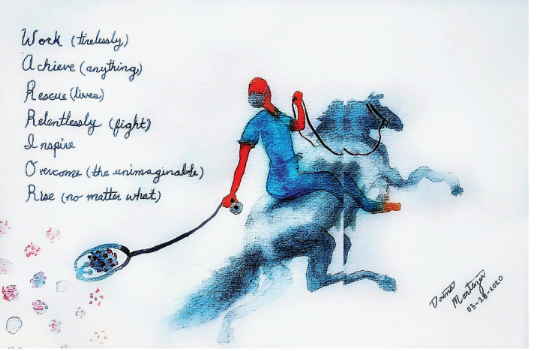 Work (tirelessly)
Achieve (anything)
Rescue (lives)
Relentlessly (fight)
Inspire
Overcome (the unimaginable)
Rise (no matter what)
03-28-2020